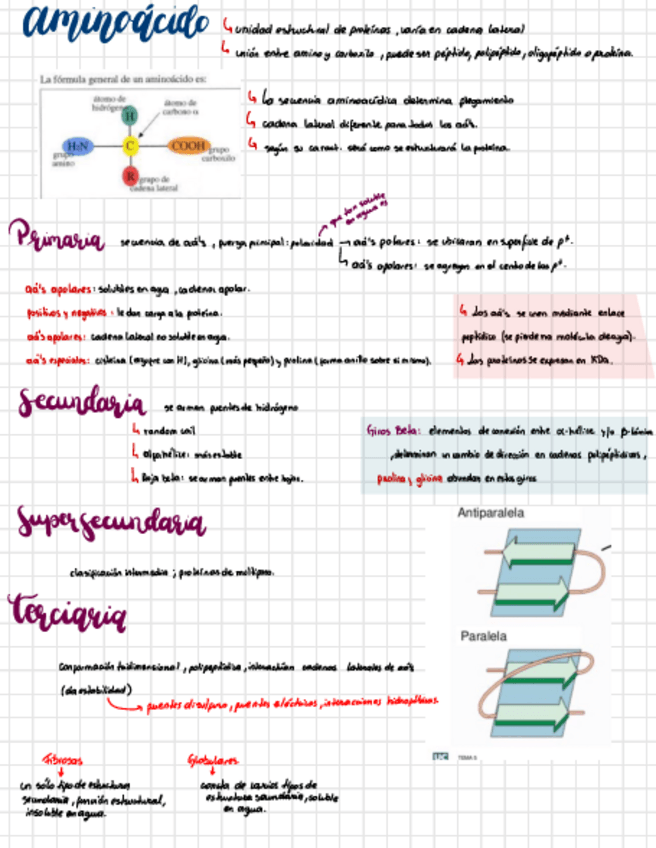 aminoácido
↳ unidad estructural de proteínas, varía en cadena lateral
↳ unión entre amino y carboxilo, puede ser péptido, polipéptido, oligopéptido o proteína.
La fórmula general de un aminoácido es:
átomo de hidrógeno
átomo de carbono α
H
H₂N
C
COOH
grupo amino
grupo carboxilo
R
grupo de cadena lateral
↳ La secuencia aminoacídica determina plegamiento
↳ cadena lateral diferente para todos los aá's.
↳ según su caract. será como se estructurará la proteína.
que tan soluble en agua es
Primaria
secuencia de aá's, fuerza principal: polaridad
→ aá's polares: se ubicaran en superficie de p*.
↳ aá's apolares: se agregan en el centro de las p*.
aá's apolares: solubles en agua, cadena apolar.
positivos y negativos: le dan carga a la proteína.
aá's apolares: cadena lateral no soluble en agua.
aá's especiales: cisteína (aporte con H), glicina (más pequeño) y prolina (forma anillo sobre si mismo).
↳ Los aá's se unen mediante enlace
peptídico (se pierde na molécula de agua).
↳ Las proteínas se expresan en KDa.
Secundaria
se arman puentes de hidrógeno
↳ random coil
↳ alpha hélice: más estable
↳ hoja beta: se arman puentes entre hojas.
Giros Beta: elementos de conexión entre α-hélice y/o β-lámina
, determinan un cambio de dirección en cadenas polipeptídicas,
prolina y glicina abundan en estos giros
Supersecundaria
clasificación intermedia; proteínas de múltiples.
Antiparalela
Paralela
TEMA 5
UC
Terciaria
conformación tridimensional, polipeptídica, interactúan cadenas laterales de aá's
(da estabilidad)
puentes disulfuro, puentes eléctricos, interacciones hidrofóbicas
Fibrosas
un sólo tipo de estructura
secundaria, función estructural,
insoluble en agua.
Globulares
consta de varios tipos de
estructura secundaria, soluble
en agua.